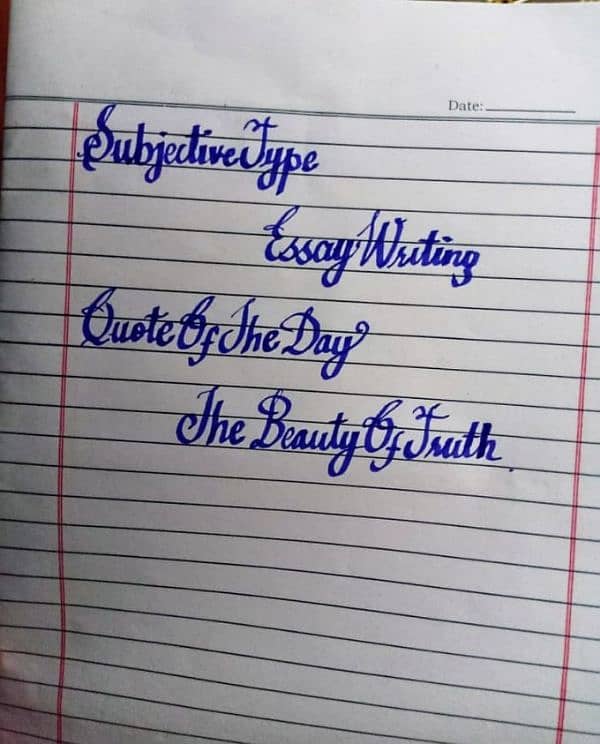 Date:
Subjective Type
Essay Writing
Quote Of The Day
The Beauty Of Truth